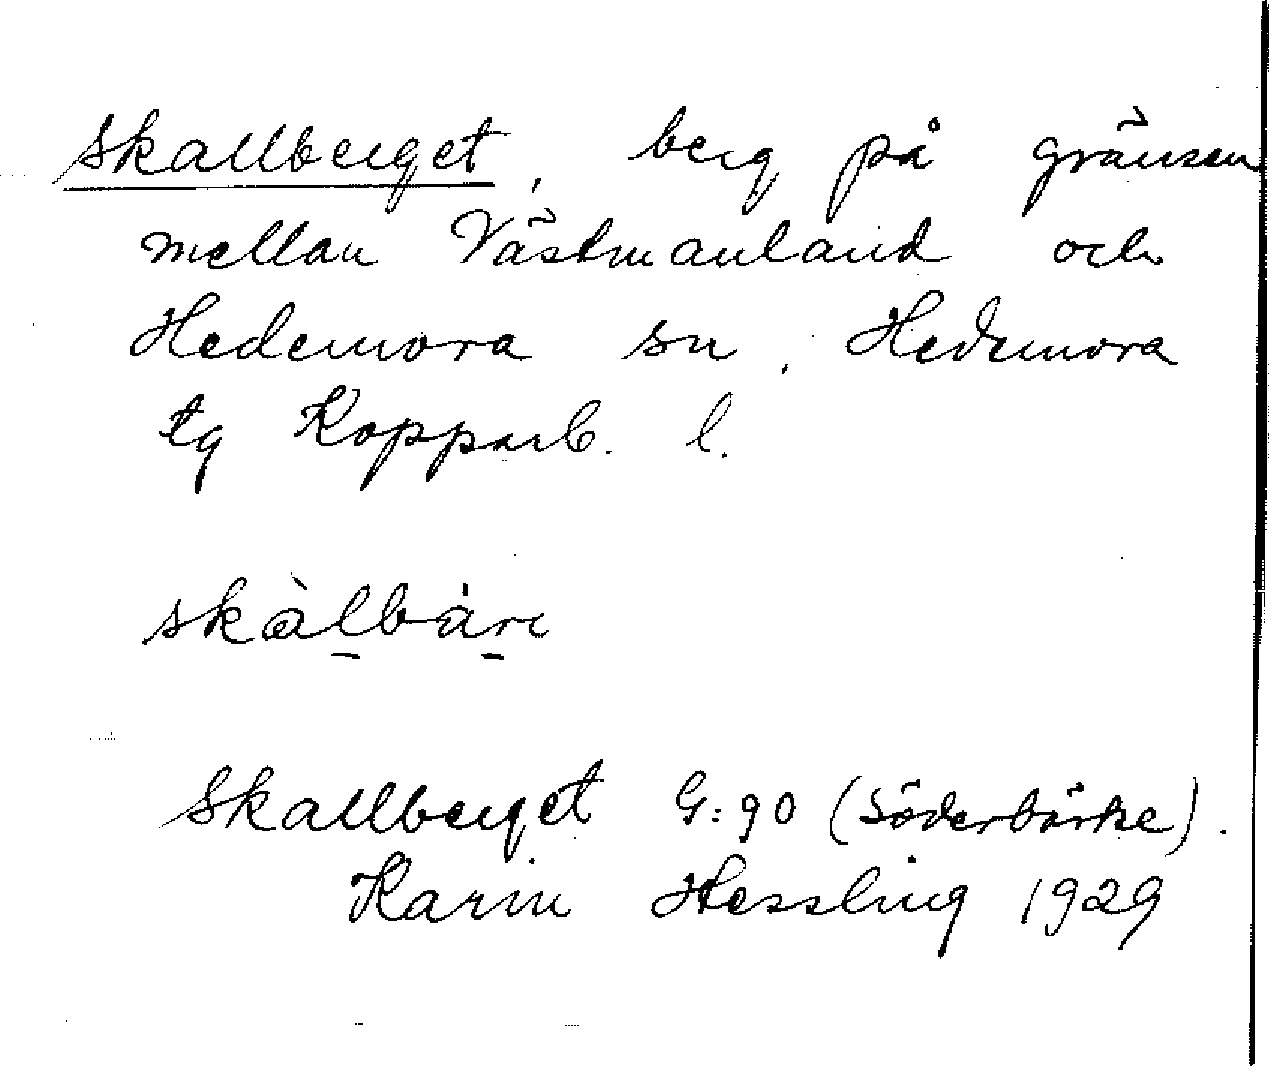 Skallberget, berg på gränsen
mellan Västmanland och
Hedemora sn, Hedemora
tg Kopparb. l.
skàlbáre
Skallberget G:90 (Söderbärke).
Karin Hessling 1929